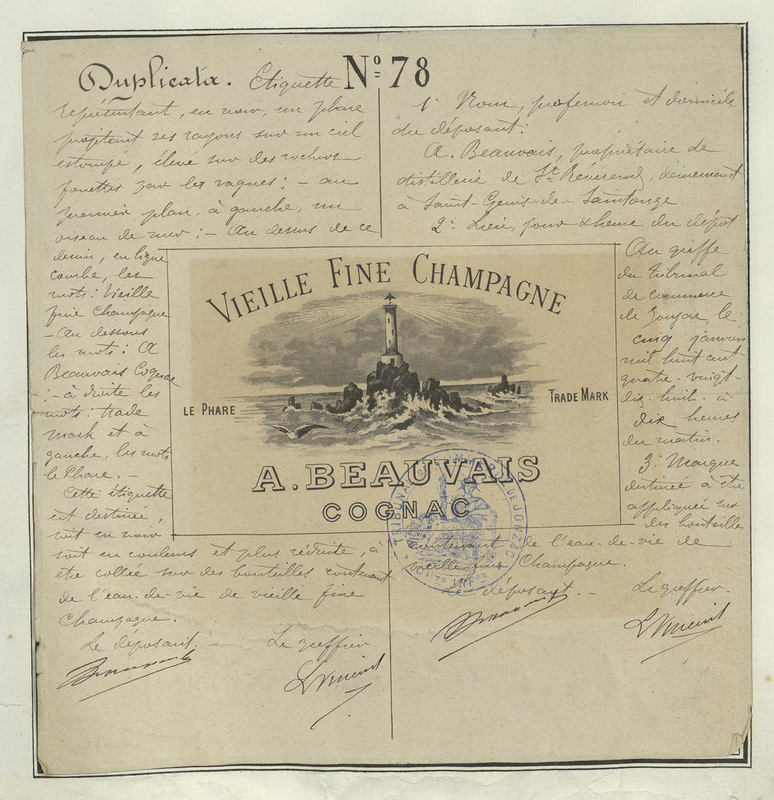 Duplicata. Etiquette
Nº 78
représentant, en noir, un phare
projetant ses rayons sur un ciel
estompé, élevé sur des rochers
fouettés par les vagues; – au
premier plan, à gauche, un
oiseau de mer; – Au dessus de ce
dessin, en ligne
courbe, les
mots: Vieille
fine Champagne
– Au dessous
les mots: A
Beauvais Cognac
; – à droite les
mots: trade
mark et à
gauche, les mots
le Phare. –
Cette étiquette
est destinée,
soit en noir
soit en couleurs et plus réduite, à
être collée sur des bouteilles contenant
de l'eau-de-vie de vieille fine
Champagne.
Le déposant. – Le greffier
VIEILLE FINE CHAMPAGNE
LE PHARE
TRADE MARK
A. BEAUVAIS
COGNAC
1º Nom, profession et domicile
du déposant:
A. Beauvais, propriétaire de
distillerie de St Révérend, demeurant
à Saint-Genis-de-Saintonge
2º Lieu, jour & heure du dépôt
Au greffe
du Tribunal
de commerce
de Jonzac, le
cinq janvier
mil huit cent
quatre-vingt-
dix-huit à
dix heures
du matin.
3º Marque
destinée à être
appliquée sur
des bouteilles
contenant de l'eau-de-vie de
vieille fine Champagne.
Le déposant. – Le greffier.
TRIBUNAL DE COMMERCE DE JONZAC